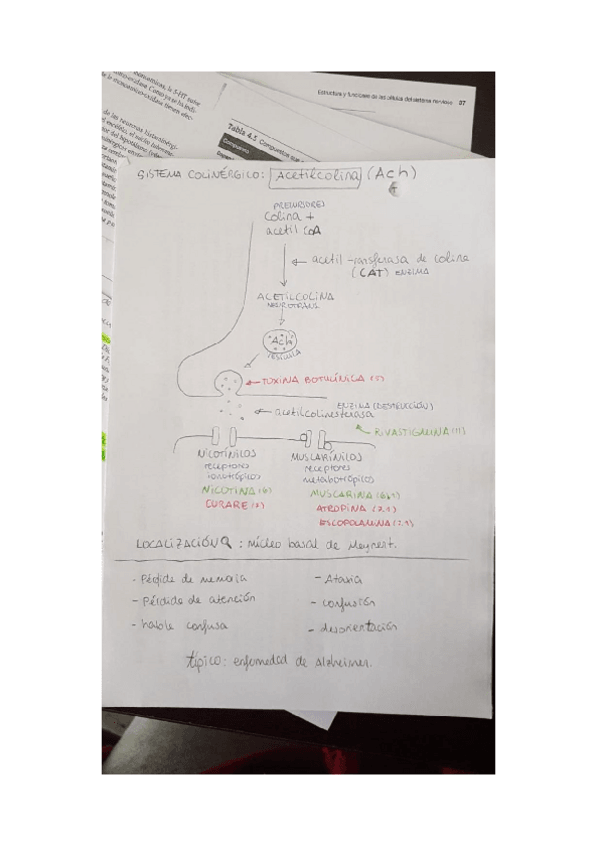 Estructura y funciones de las células del sistema nervioso 37
Tabla 4.5 Compuestos que
Compuesto
SISTEMA COLINÉRGICO: Acetilcolina (Ach)
PRECURSORES
Colina +
acetil CoA
acetil-transferasa de colina
(CAT) ENZIMA
ACETILCOLINA
NEUROTRANS
Ach
VESÍCULA
TOXINA BOTULÍNICA (5)
ENZIMA (DESTRUCCIÓN)
acetilcolinesterasa
RIVASTIGMINA (11)
NICOTÍNICOS
receptores
ionotrópicos
NICOTINA (6)
CURARE (7)
MUSCARÍNICOS
receptores
metabotrópicos
MUSCARINA (6,1)
ATROPINA (7,1)
ESCOPOLAMINA (7,1)
LOCALIZACIÓN: núcleo basal de Meynert.
- Pérdida de memoria
- Pérdida de atención
- habla confusa
- Ataxia
- confusión
- desorientación
típico: enfermedad de Alzheimer.